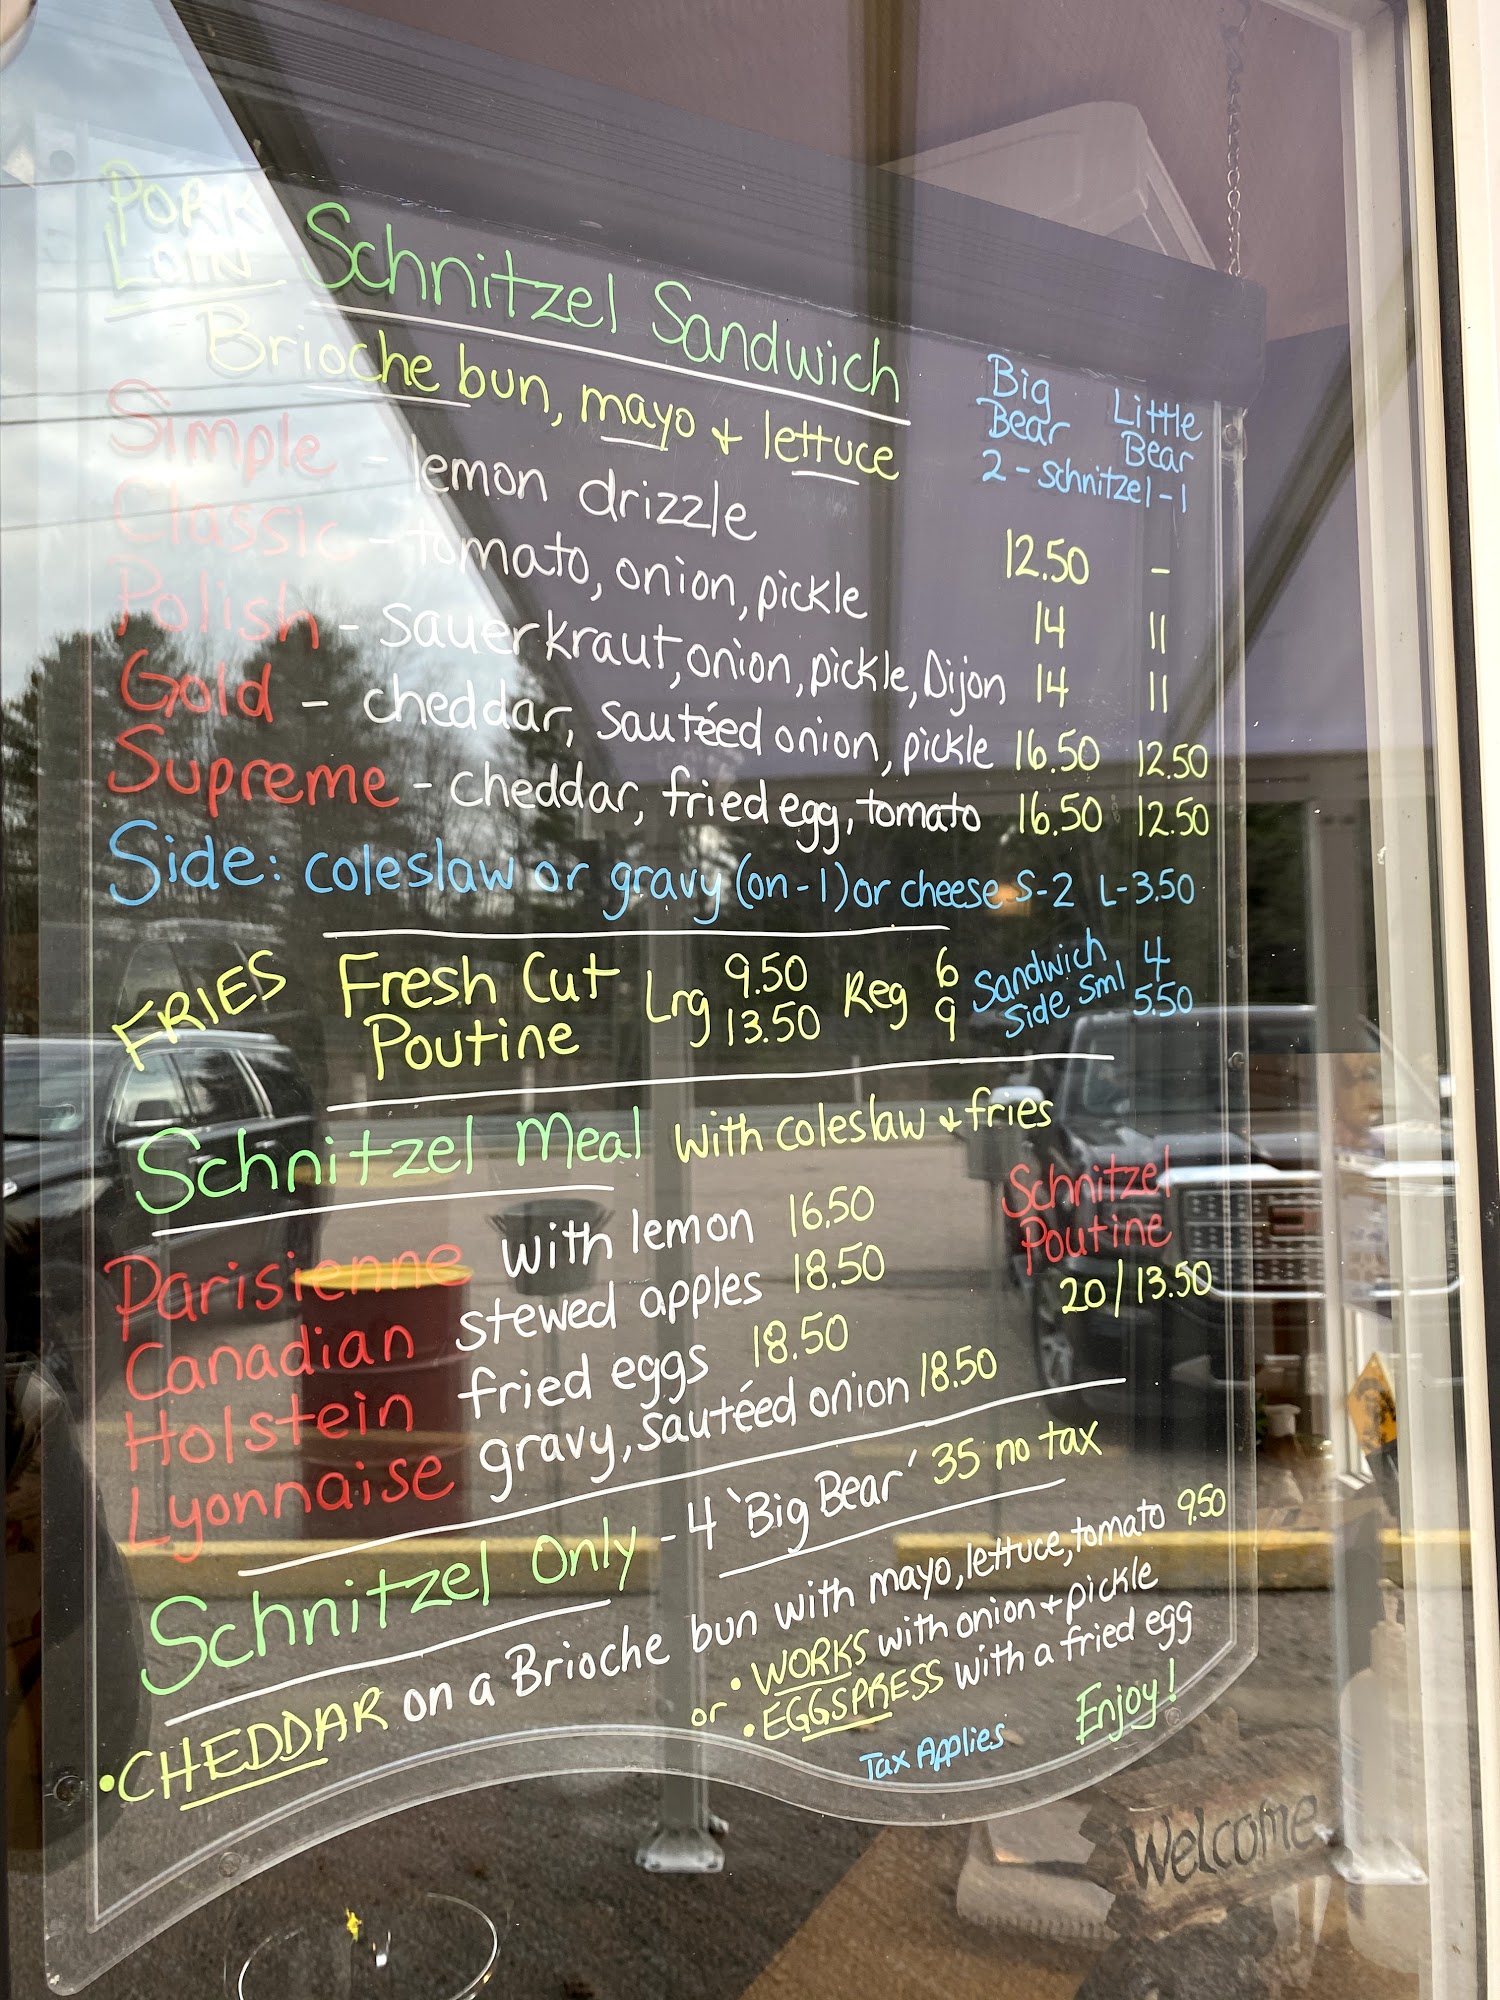 PORK LOIN Schnitzel Sandwich
Brioche bun, mayo + lettuce
Big Bear Little Bear
2 - Schnitzel - 1
Simple - lemon drizzle 12.50 -
Classic - tomato, onion, pickle 14 11
Polish - sauerkraut, onion, pickle, Dijon 14 11
Gold - cheddar, sautéed onion, pickle 16.50 12.50
Supreme - cheddar, fried egg, tomato 16.50 12.50
Side: coleslaw or gravy (on-1) or cheese S-2 L-3.50
FRIES Fresh Cut Lrg 9.50 Reg 6 Sandwich 4
Poutine 13.50 9 Side Sml 5.50
Schnitzel Meal with coleslaw + fries
Parisienne with lemon 16.50
Canadian stewed apples 18.50
Holstein fried eggs 18.50
Lyonnaise gravy, sautéed onion 18.50
Schnitzel
Poutine
20/13.50
Schnitzel Only - 4 `Big Bear´ 35 no tax
•CHEDDAR on a Brioche bun with mayo, lettuce, tomato 9.50
or •WORKS with onion + pickle
•EGGSPRESS with a fried egg
Tax Applies Enjoy!
Welcome